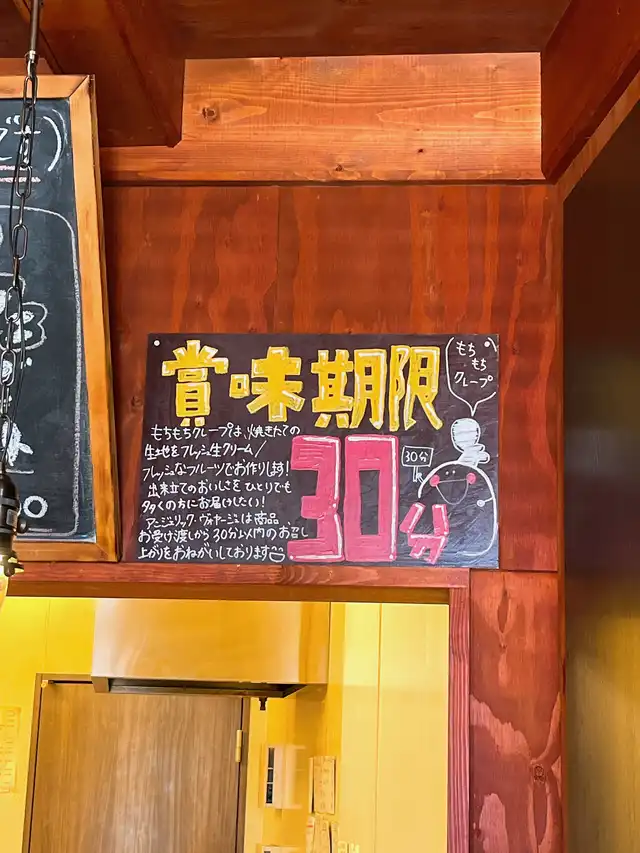 賞味期限
30分
もちもちクレープは、焼きたての
生地をフレッシュ生クリーム/
フレッシュなフルーツでお作りします!
出来立てのおいしさをひとりでも
多くの方にお届けしたい!
アンジェリック・ヴォヤージュは商品
お受け渡しから30分以内のお召し
上がりをおねがいしております
もち
もち
クレープ
30分